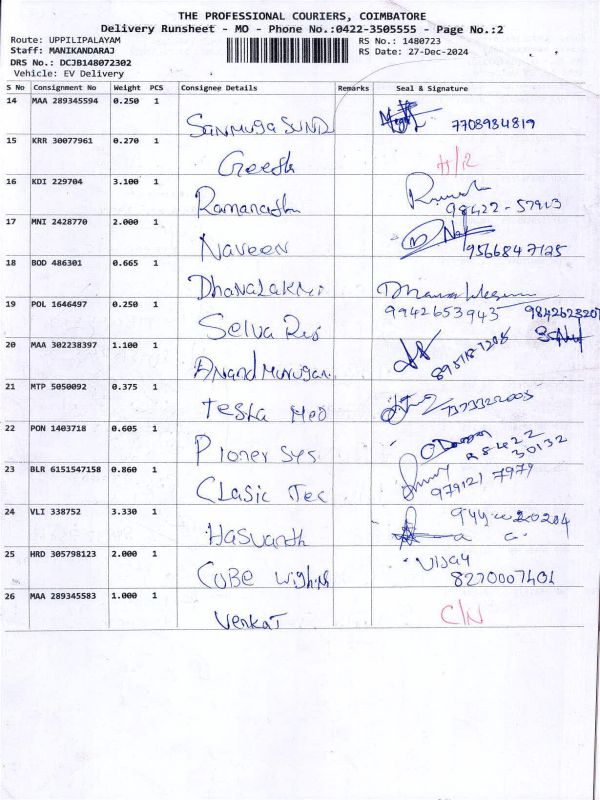 THE PROFESSIONAL COURIERS, COIMBATORE
Delivery Runsheet - MO - Phone No.:0422-3505555 - Page No.:2
Route: UPPILIPALAYAM RS No.: 1480723
Staff: MANIKANDARAJ RS Date: 27-Dec-2024
DRS No.: DCJB148072302
Vehicle: EV Delivery
S No Consignment No Weight PCS Consignee Details Remarks Seal & Signature
14 MAA 289345594 0.250 1
Sanmuga SUND 7708934819
15 KRR 30077961 0.270 1
Geeth
16 KDI 229704 3.100 1
Ramanathn 98422-57913
17 MNI 2428770 2.000 1
Naveen 9566847125
18 BOD 486301 0.665 1
DhanaLakmi
19 POL 1646497 0.250 1 9942653943
Selva Raj
20 MAA 302238397 1.100 1
Anand Murugan
21 MTP 5050092 0.375 1
Testa Med
22 PON 1403718 0.605 1
Pioner Sys 30132
23 BLR 6151547158 0.860 1
Clasic Tec 979121 7979
24 VLI 338752 3.330 1
Hasvanth
25 HRD 305798123 2.000 1 Vijay
CUBE 8270007401
26 MAA 289345583 1.000 1
Venkat C/N